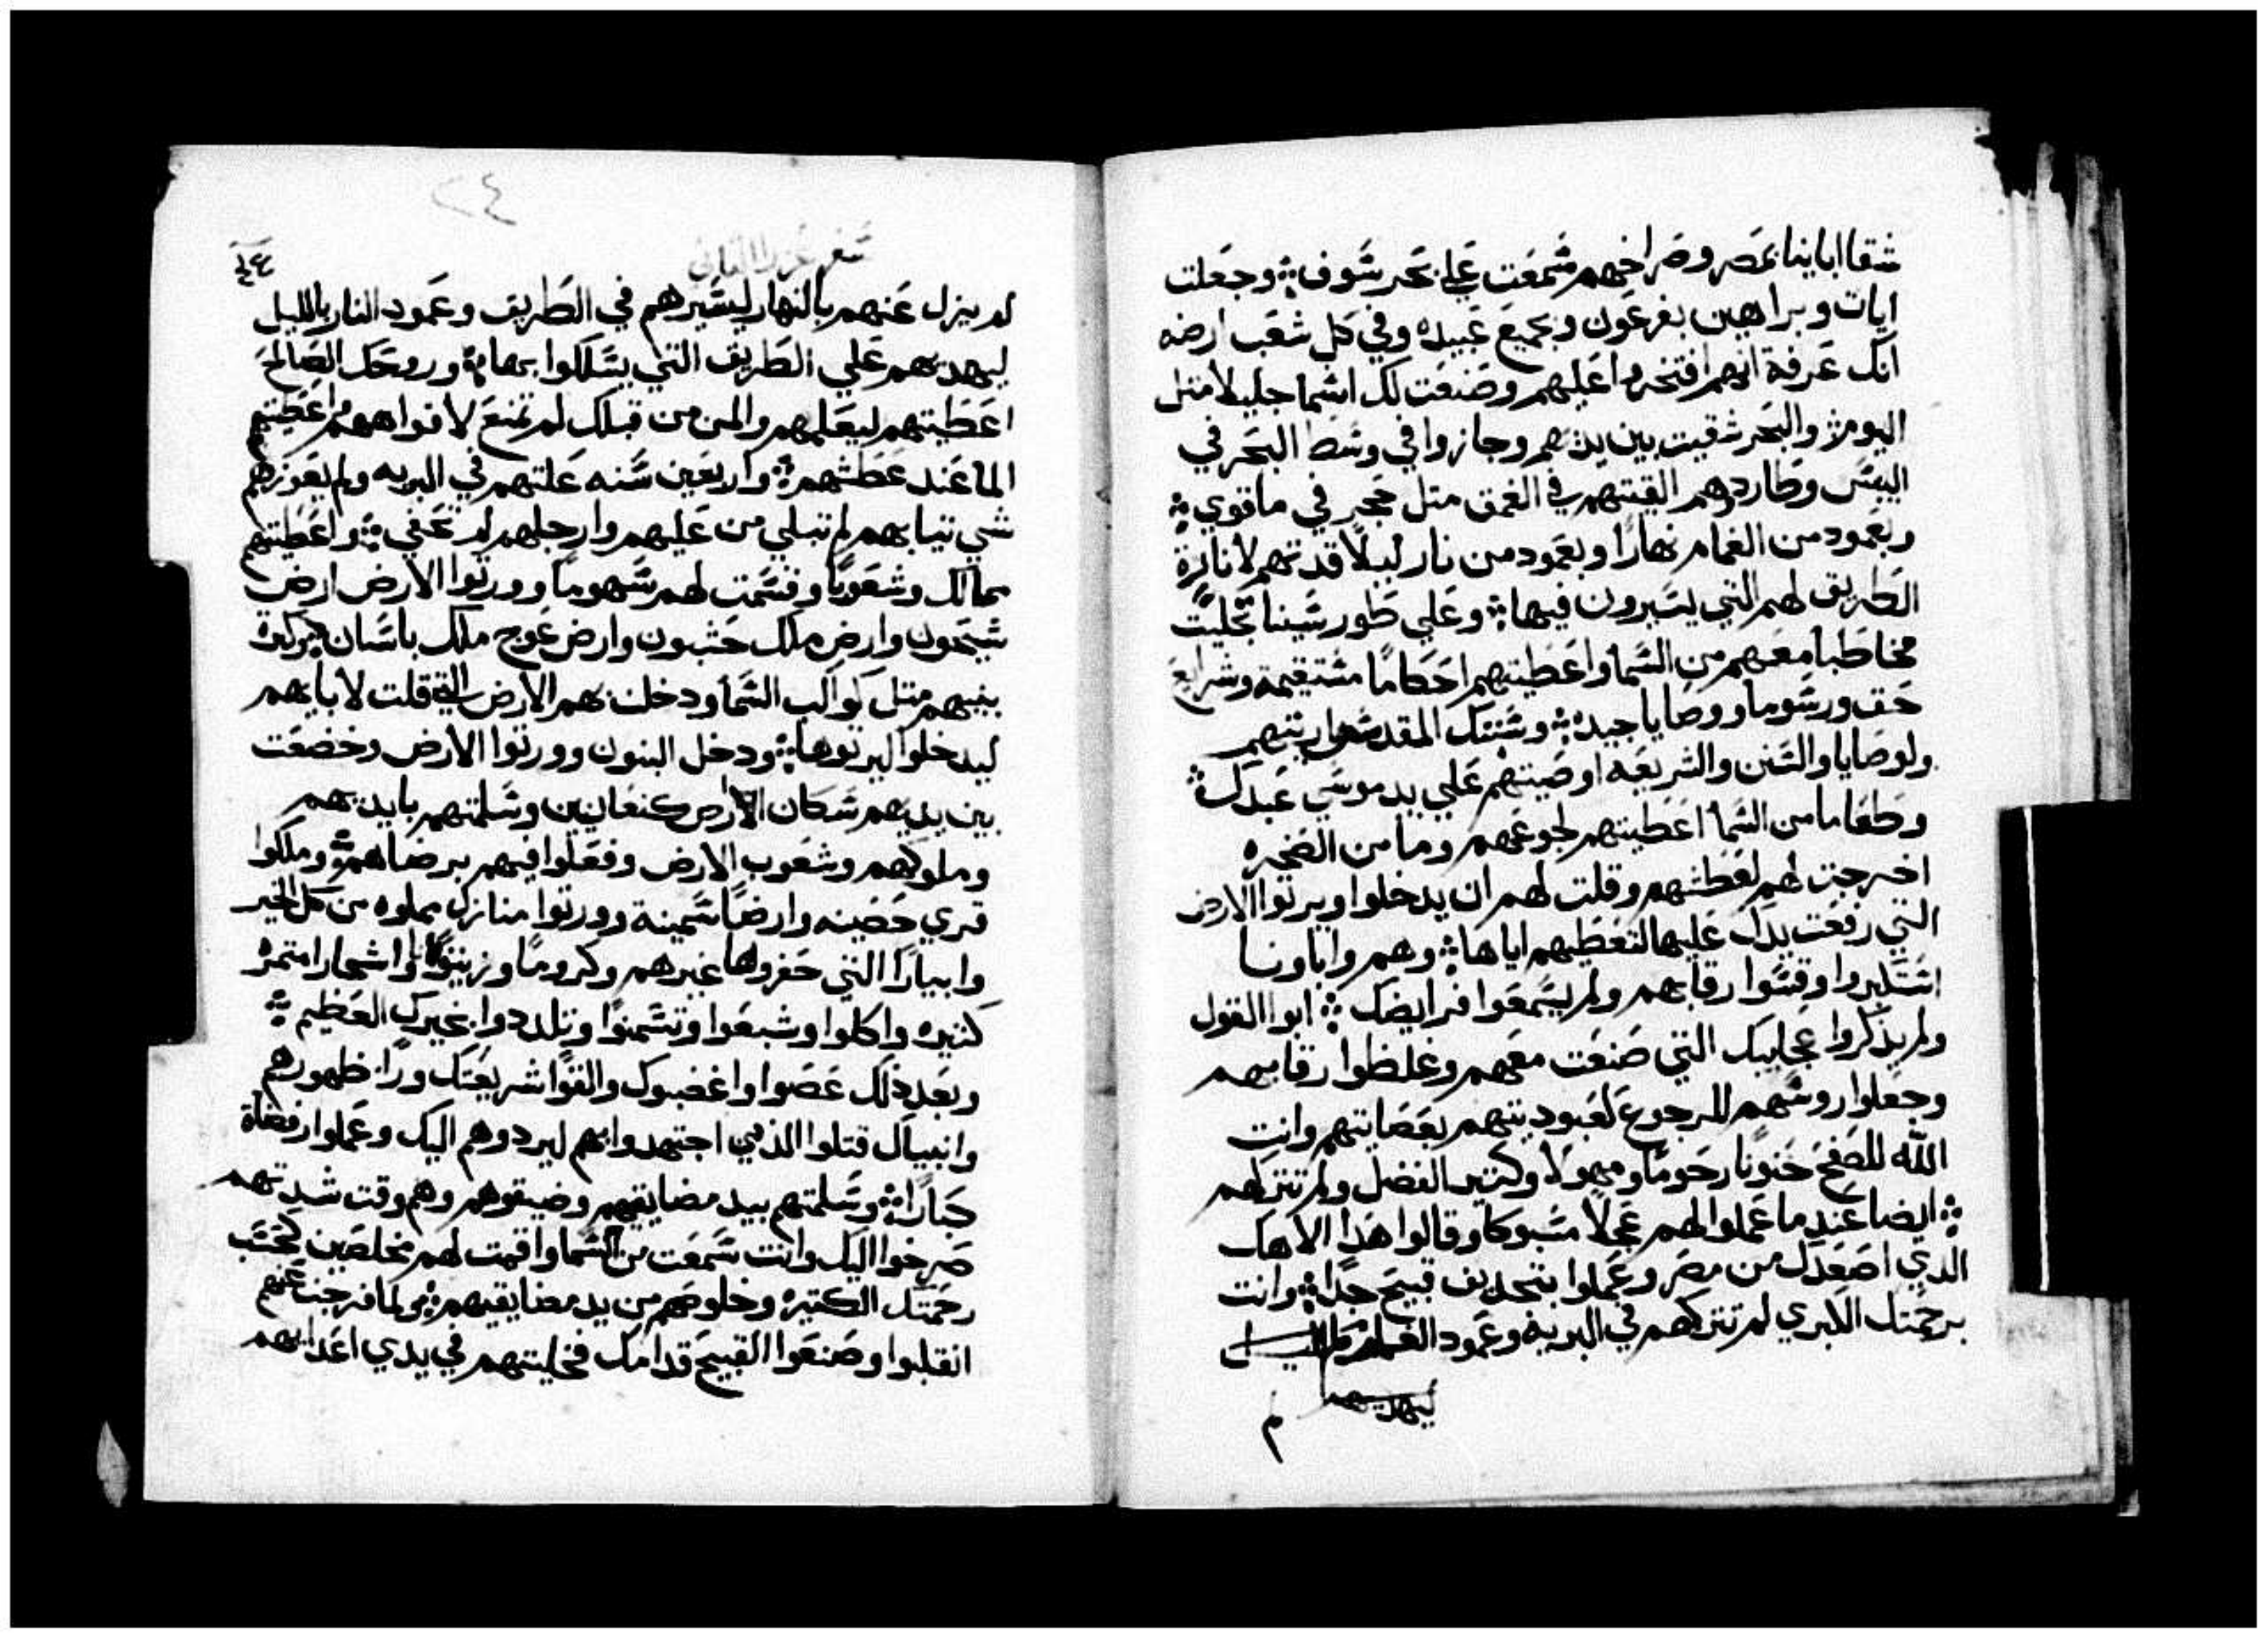 شقا ابابنا بمصر وصراخهم سمعت علي بحر سوف ۞ وجعلت
ايات وبراهين بفرعون وبجميع عبيده وفي كل شعب ارضه
انك عرفة انهم افتخروا عليهم وصنعت لك اسما جليلا متل
اليوم ۞ والبحر شقيت بين يديهم وجازوا في وسط البحر في
اليبس وطاردهم القيتهم في الغمق متل حجر في ما قوي ۞
وبعمود من الغمام نهارًا وبعمود من نار ليلًا قدتهم لانارة
الطريق لهم التي يسيرون فيها ۞ وعلي طور سينا تجليت
مخاطبا معهم من السما واعطيتهم احكامًا مستقيمة وشرايع
حق ورسوما ووصايا جيده ۞ وسبتك المقدسه اريتهم
ولوصايا والسنن والشريعه اوصيتهم علي يد موسي عبدك ۞
وطعاما من السما اعطيتهم لجوعهم وما من الصخره
اخرجت لهم لعطشهم وقلت لهم ان يدخلوا ويرتوا الارض
التي رفعت يدك عليها لتعطيهم اياها ۞ وهم واباونا
استكبروا وقسوا رقابهم ولم يسمعوا فرايضك ۞ ابوا القول
ولم يذكروا عجايبك التي صنعت معهم وغلظوا رقابهم
وجعلوا روسهم للرجوع لعبوديتهم بعصايتهم وانت
الله للصفح حنونًا رحومًا ومهولًا وكتير الفضل ولم تتركهم
۞ ايضا عندما عملوا لهم عجلًا مسبوكا وقالوا هدا الاهك
الدي اصعدك من مصر وعملوا بتجديف قبيح جدًا ۞ وانت
برحمتك الكبري لم تتركهم في البريه وعمود الغمام
ليهديهم
م
٢٤
سفر عزرا التاني
لم يزل عنهم بالنهار ليسيرهم في الطريق وعمود النار بالليل
ليهديهم علي الطريق التي يسلكوا بها ۞ وروحك الصالح
اعطيتهم ليعلمهم والمن من قبلك لم تمنع لافواههم واعطيتهم
الما عند عطشهم ۞ واربعين سنه علتهم في البريه ولم يعوزهم
شي تيابهم لم تبلي من عليهم وارجلهم لم تحفي ۞ واعطيتهم
ممالك وشعوبًا وقسمت لهم سهومًا وورتوا الارض ارض
سيحون وارض ملك حشبون وارض عوج ملك باسان
بنيهم متل كواكب السما ودخلت بهم الارض التي قلت لابايهم
ليدخلوا ليرتوها ۞ ودخل البنون وورتوا الارض وخضعت
بين يديهم سكان الارض كنعانيين وسلمتهم بايديهم
وملوكهم وشعوب الارض وفعلوا فيهم برضاهم ۞ وملكوا
قري حصينه وارضًا سمينة وورتوا منازل مملوه من كل الخير
وابيارًا التي حفروها غيرهم وكرومًا وزيتونًا واشجارا متمره
كتيره واكلوا وشبعوا وتسمنوا وتلددوا بخيرك العظيم ۞
وبعد ذلك عصوا واغضبوك والقوا شريعتك ورا ظهورهم
وانبياك قتلوا الذين اجتهدوا بهم ليردوهم اليك وعملوا رفضاة
كبارًا ۞ وسلمتهم بيد مضايقيهم وضيقوهم وهم وقت شدتهم
صرخوا اليك وانت سمعت من السما واقمت لهم مخلصين كحسب
رحمتك الكتيره وخلوصهم من يد مضايقيهم ۞ ولما فرجت عنهم
انقلبوا وصنعوا القبيح قدامك فخليتهم في يدي اعدايهم